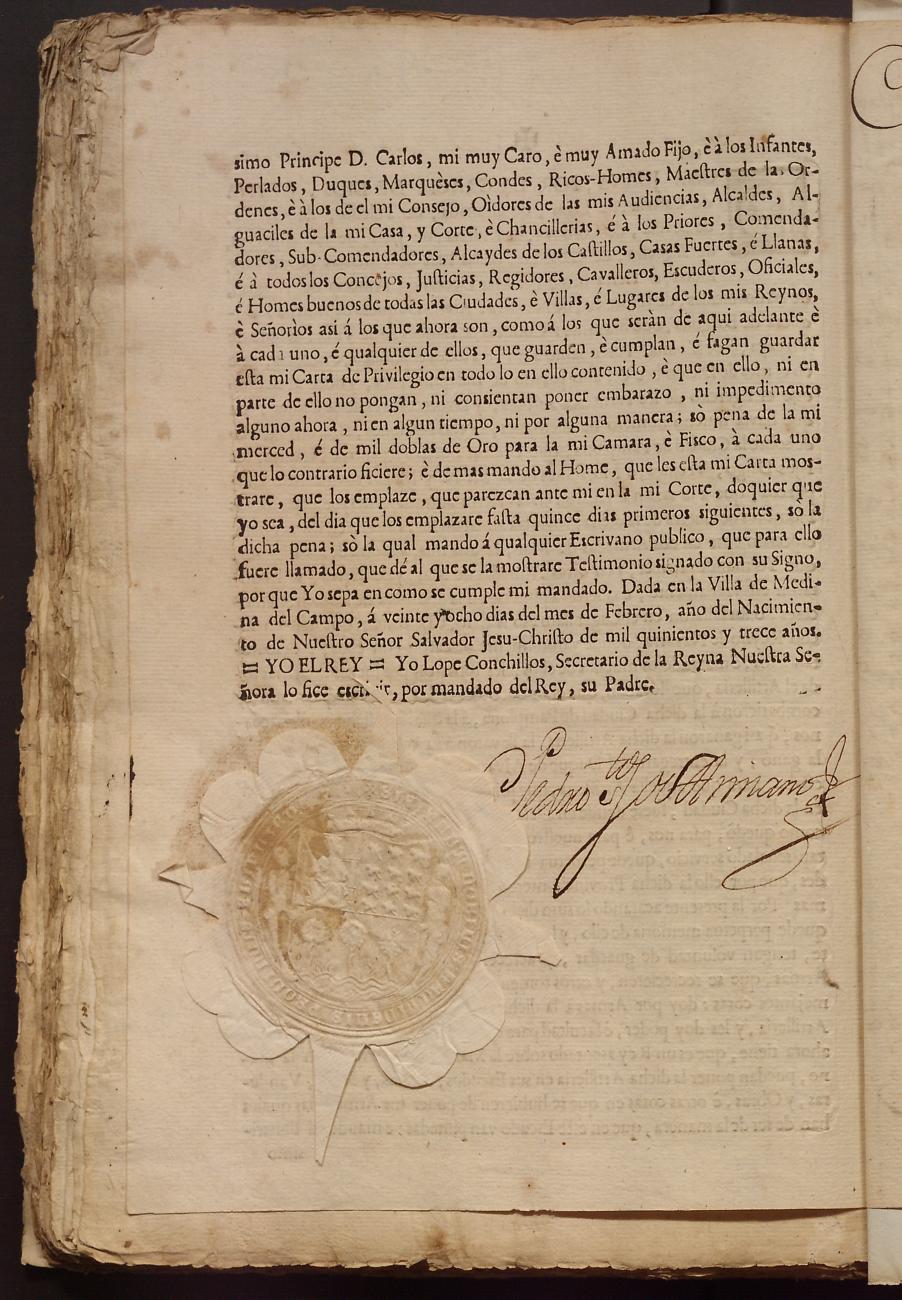 simo Principe D. Carlos, mi muy Caro, è muy Amado Fijo, è à los Infantes,
Perlados, Duques, Marquèses, Condes, Ricos-Homes, Maestres de la. Or-
denes, è à los de el mi Consejo, Oìdores de las mis Audiencias, Alcaldes, Al-
guaciles de la mi Casa, y Corte, è Chancillerias, é à los Priores, Comenda-
dores, Sub-Comendadores, Alcaydes de los Castillos, Casas Fuertes, é Llanas,
é à todos los Concejos, Justicias, Regidores, Cavalleros, Escuderos, Oficiales,
é Homes buenos de todas las Ciudades, è Villas, é Lugares de los mis Reynos,
è Señorìos asi á los que ahora son, como á los que seràn de aqui adelante è
à cada uno, é qualquier de ellos, que guarden, è cumplan, é fagan guardar
esta mi Carta de Privilegio en todo lo en ello contenido, è que en ello, ni en
parte de ello no pongan, ni consientan poner embarazo, ni impedimento
alguno ahora, ni en algun tiempo, ni por alguna manera; sò pena de la mi
merced, é de mil doblas de Oro para la mi Camara, è Fisco, à cada uno
que lo contrario ficiere; è demas mando al Home, que les esta mi Carta mos-
trare, que los emplaze, que parezcan ante mi en la mi Corte, doquier que
yo sea, del dia que los emplazare fasta quince dias primeros siguientes, sò la
dicha pena; sò la qual mando á qualquier Escrivano publico, que para ello
fuere llamado, que dé al que se la mostrare Testimonio signado con su Signo,
porque Yo sepa en como se cumple mi mandado. Dada en la Villa de Medi-
na del Campo, á veinte y ocho dias del mes de Febrero, año del Nacimien-
to de Nuestro Señor Salvador Jesu-Christo de mil quinientos y trece años.
= YO EL REY = Yo Lope Conchillos, Secretario de la Reyna Nuestra Se-
ñora lo fice escrivir, por mandado del Rey, su Padre.
Pedro